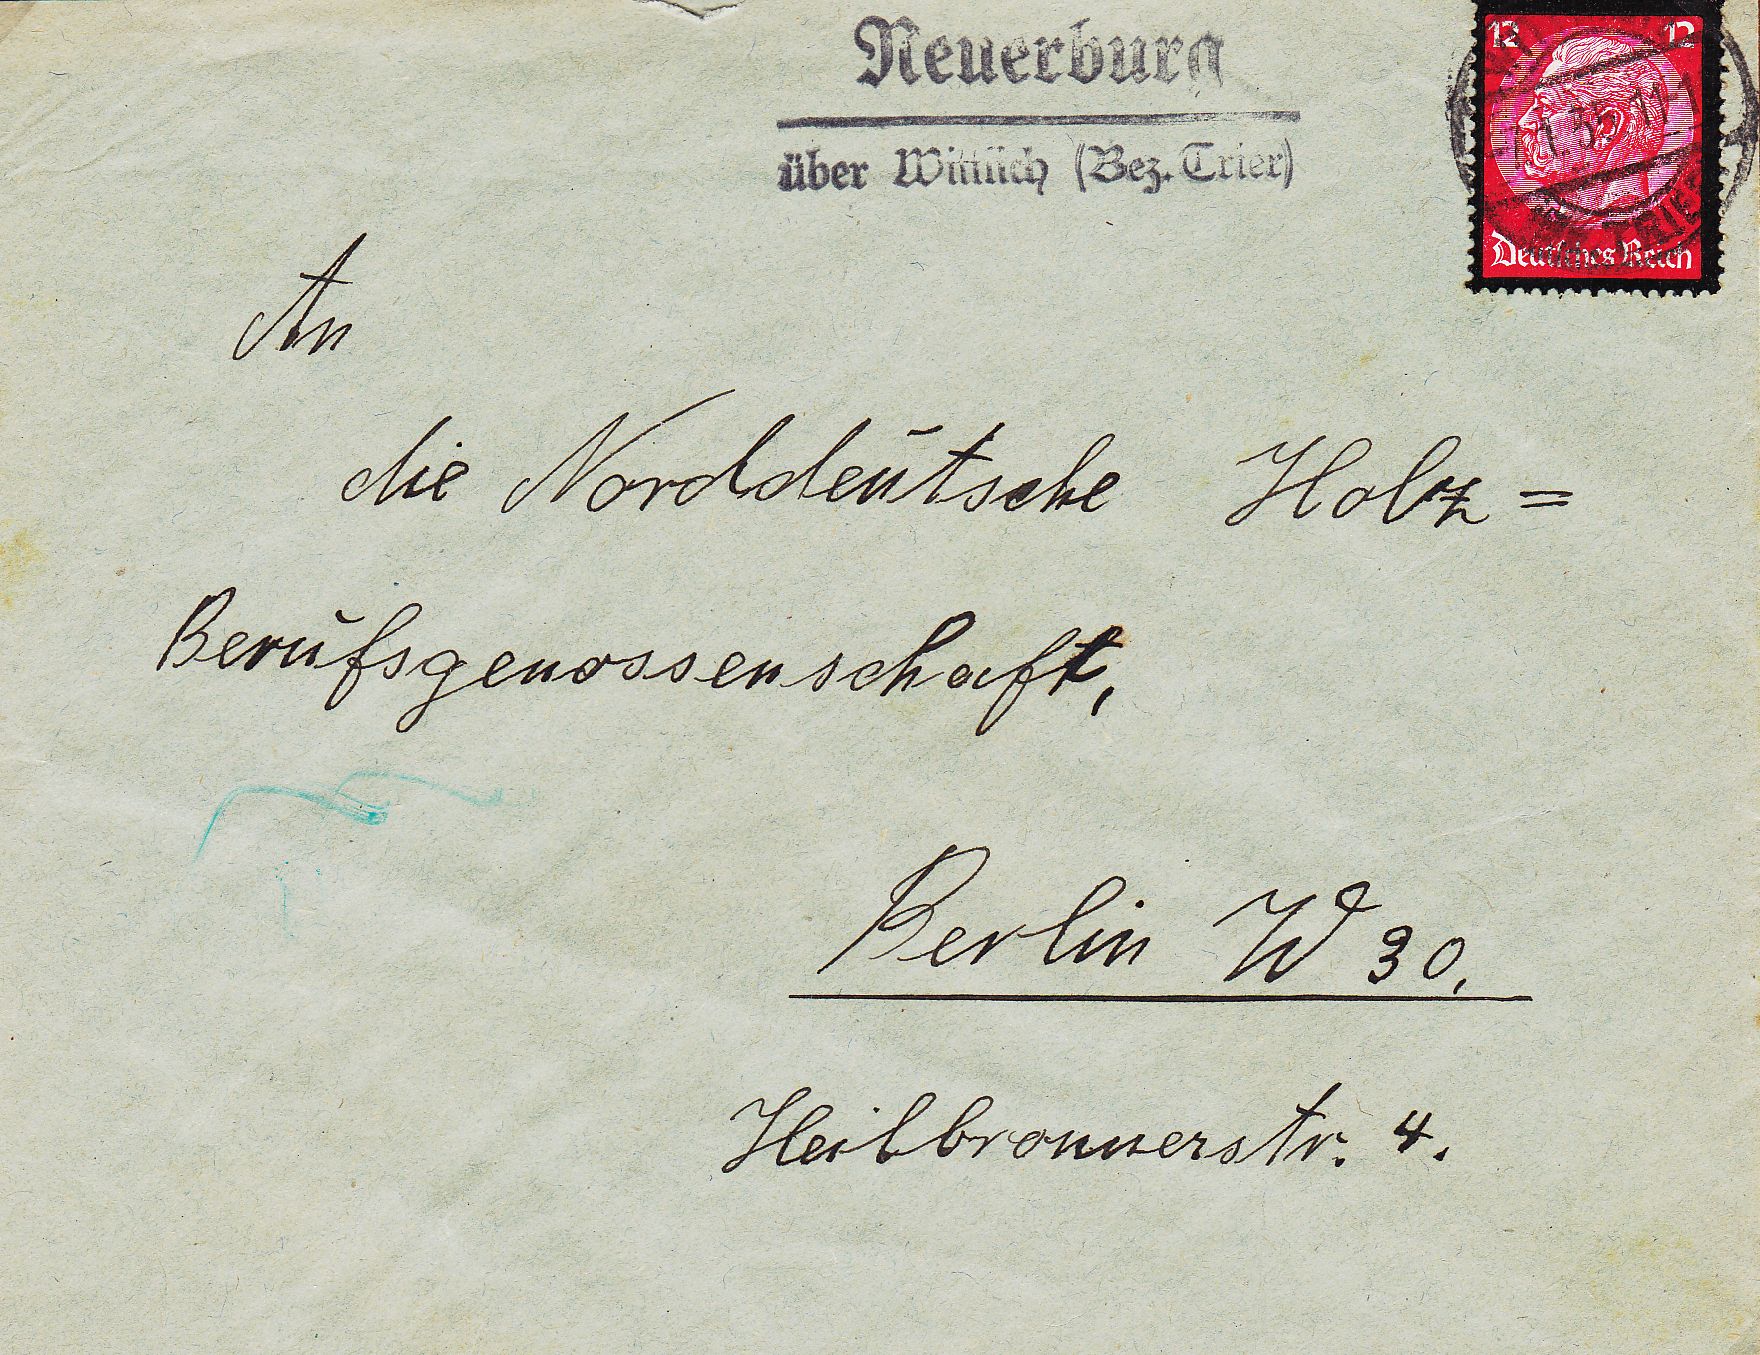 Neuerburg
über Wittlich (Bez. Trier)
12 12
35 11
TRIE
Deutsches Reich
An
die Norddeutsche Holz=
Berufsgenossenschaft,
Berlin W 30.
Heilbronnerstr. 4.